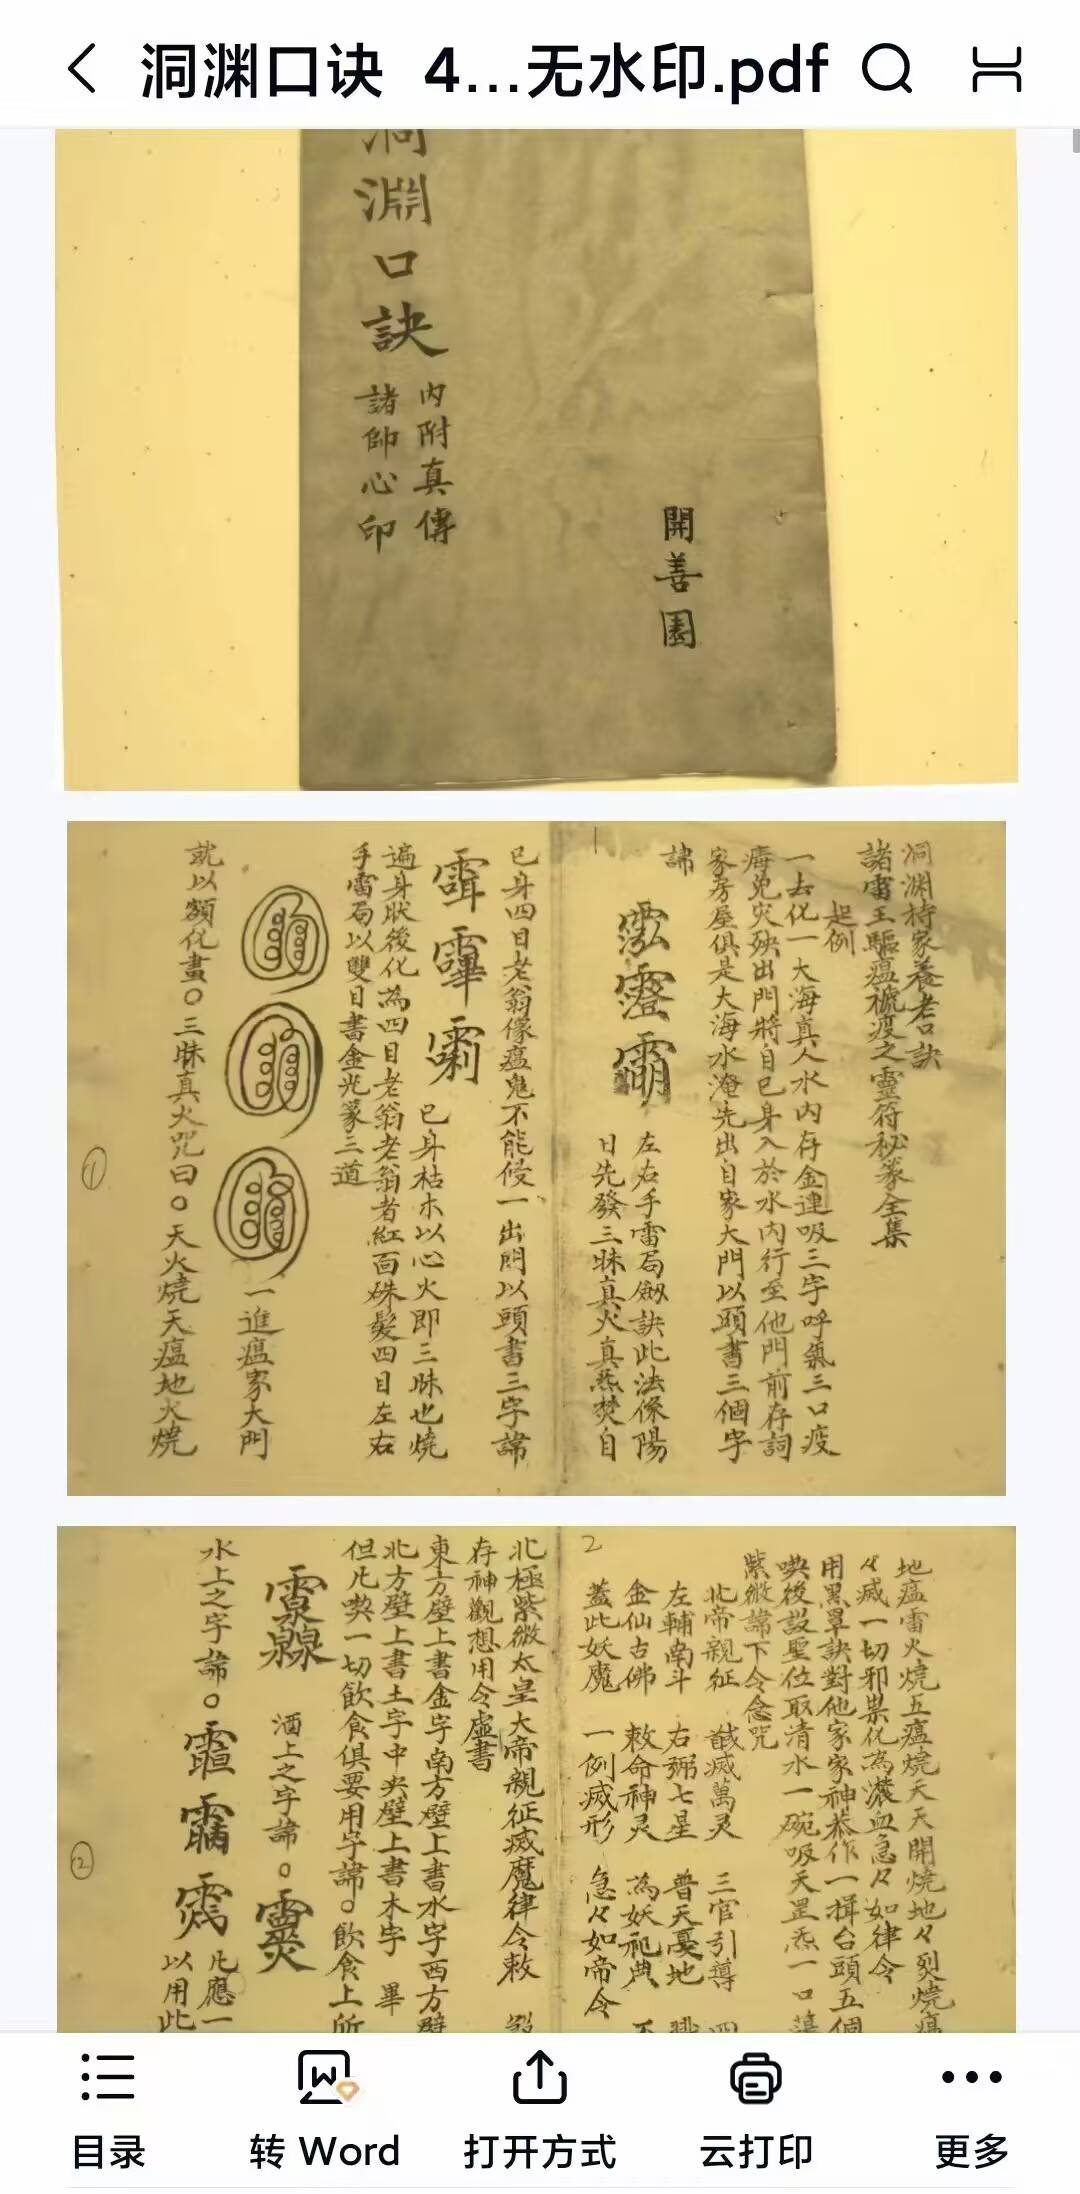 洞渊口诀 4...无水印.pdf
洞淵口訣
內附真傳
諸帥心印
開善園
1
洞淵持家養老口訣
諸雷王驅瘟禳疫之靈符秘篆全集
起例
一去化一大海真人水內存金連吸三字呼氣三口疫
癘兇災殃出門將自已身入於水內行至他門前存詞
家房屋俱是大海水淹先出自家大門以頭書三個字
諱
左右手雷局劔訣此法係陽
日先發三昧真火真炁焚自
已身四目老翁像瘟鬼不能侵一出門以頭書三字諱
已身枯木以心火即三昧也燒
遍身狀後化為四目老翁老翁者紅面硃髮四目左右
手雷局以雙目書金光篆三道
一進瘟家大門
就以額化畫○三昧真火咒曰○天火燒天瘟地火燒
①
2
地瘟雷火燒五瘟燒天天開燒地々烈燒瘟
々滅一切邪祟化為濃血急々如律令
用黑罩訣對他家家神恭作一揖台頭五個
喫後設聖位取清水一碗吸天罡炁一口
紫微諱下令念咒
北帝親征 馘滅萬灵 三官引導 四
左輔南斗 右弼七星 普天憂地
金仙古佛 敕命神灵 為妖祀典 不
蓋此妖魔 一例滅形 急々如帝令
北極紫微太皇大帝親征滅魔律令敕
存神觀想用令虛書
東方壁上書金字南方壁上書水字西方壁
北方壁上書土字中央壁上書木字 畢
但凡喫一切飲食俱要用字諱○飲食上所
酒上之字諱○
水上之字諱○
凡應一
以用此
②
目录
转 Word
打开方式
云打印
更多